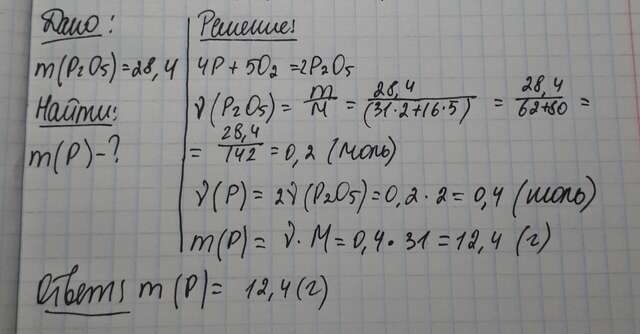 Дано:
m(P₂O₅)=28,4
Найти:
m(P)-?
Решение:
4P + 5O₂ = 2P₂O₅
ν(P₂O₅) = m/M = 28,4/(31·2+16·5) = 28,4/62+80 =
= 28,4/142 = 0,2 (моль)
ν(P) = 2ν(P₂O₅) = 0,2·2 = 0,4 (моль)
m(P) = ν·M = 0,4·31 = 12,4 (г)
Ответ: m(P) = 12,4 (г)